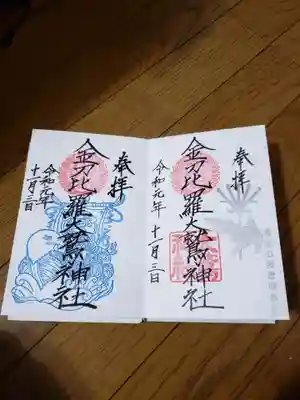 奉拝
金刀比羅大鷲神社
令和元年
十一月三日
奉拝
金刀比羅大鷲神社
令和元年
十一月三日